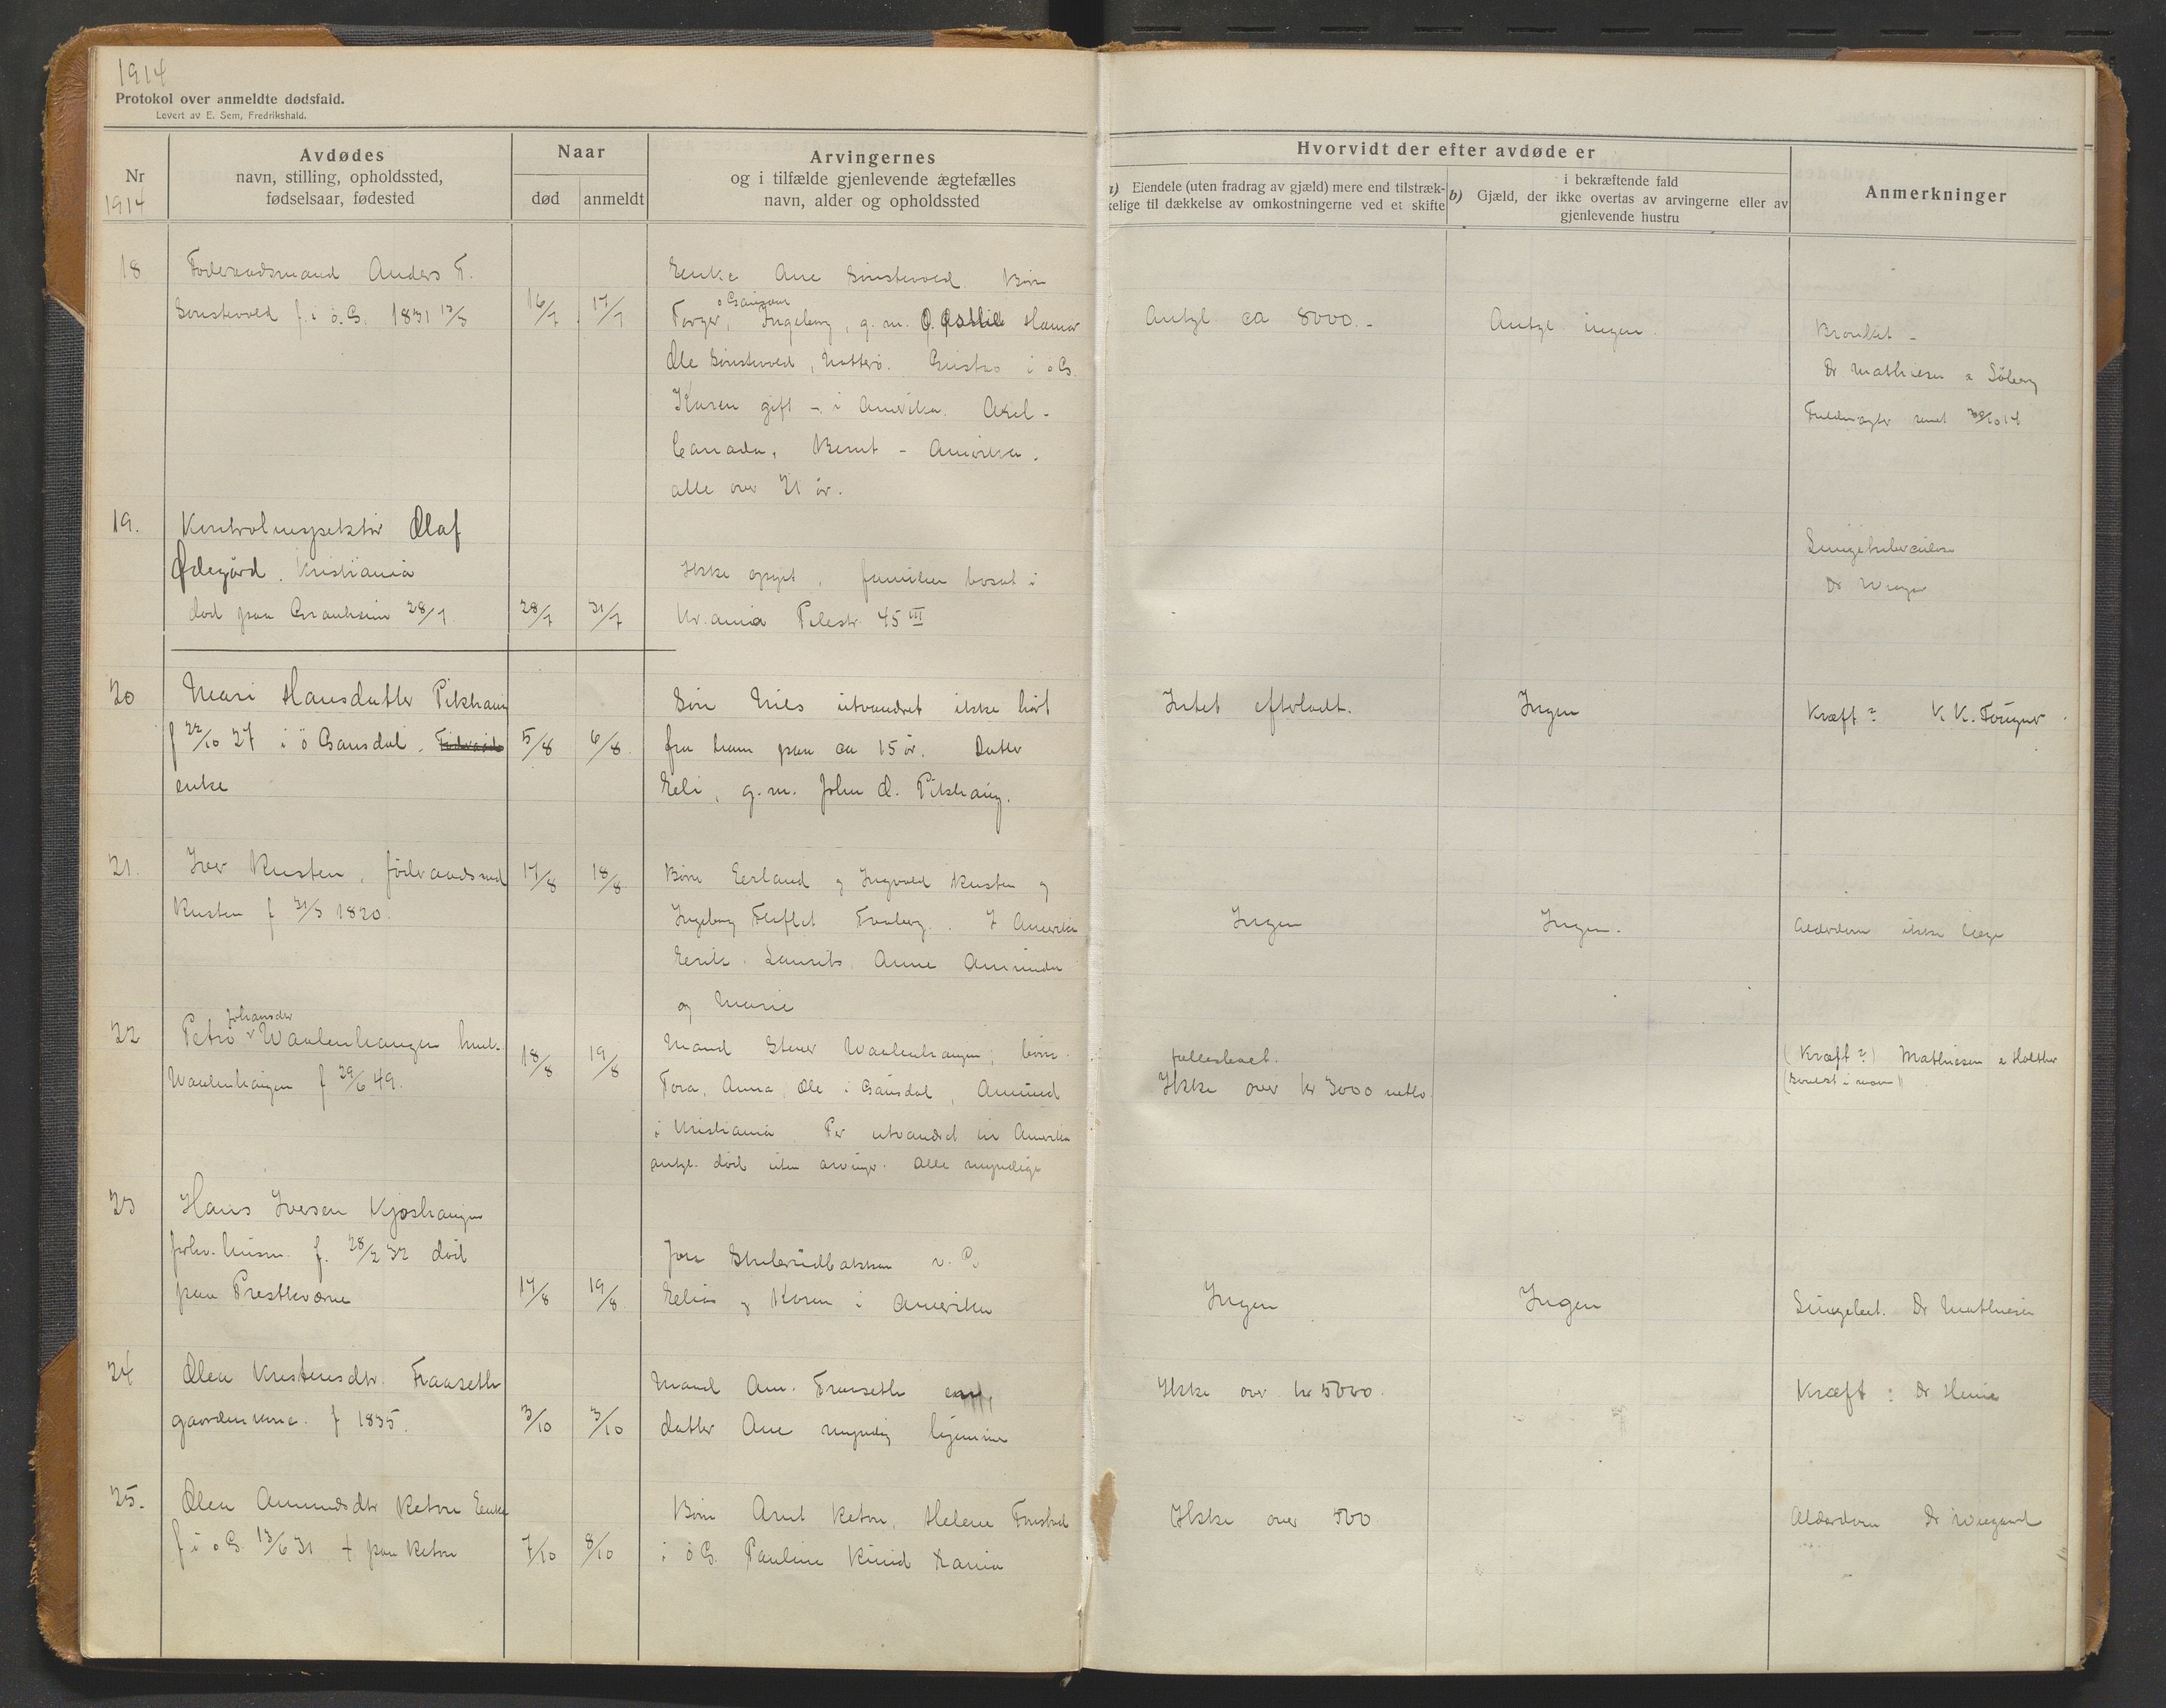 1914
Protokol over anmeldte dødsfald.
Levert av E. Sem, Fredrikshald.
Nr
1914
Avdødes
navn, stilling, opholdssted,
fødselsaar, fødested
Naar
død
anmeldt
Arvingernes
og i tilfælde gjenlevende ægtefælles
navn, alder og opholdssted
Hvorvidt der efter avdøde er
a) Eiendele (uten fradrag av gjæld) mere end tilstræk-
kelige til dækkelse av omkostningerne ved et skifte
i bekræftende fald
b) Gjæld, der ikke overtas av arvingerne eller av
gjenlevende hustru
Anmerkninger
18
Foderaadsmand Anders T.
Sønstevold f. i ö. G. 1831 13/3
16/7
17/7
Enke Ane Sønstevold Børn
ö Gausdal
Torger, Ingeborg, g. m. Hamar
Ole Sønstevold, Gustav i ö G.
Karen gift - i Amerika. Axel -
Canada, Bernt - Amerika.
alle over 21 år.
Antgl ca 8000. -
Antgl. ingen
Bronkit -
Dr Mathiesen & Söberg
19.
Kontrolinspektør Olaf
Ødegård. Kristiania
død paa Granheim 28/7
28/7
31/7
Ikke opgit, familien bosat i
Kr.ania Pilestr. 45 III
Lungetuberculose
20
Mari Hansdatter Pikhaug
f 22/10 27 i ö Gausdal.
enke
5/8
6/8
Søn Nils utvandret ikke hørt
fra ham paa ca 15 år. Datter
Eli, g. m. John O. Pikhaug.
Intet efterladt.
Ingen
Kræft? K. K.
21.
Iver Rusten, föderaadsmd
Rusten f 31/3 1820.
17/8
18/8
Børn Erland og Ingvald Rusten og
Ingeborg Flaberg. I Amerika
Erik. Laurits, Anne
og Marie
Ingen
Ingen.
Alderdom ikke læge
22
Johansdtr
Petro Waalenhaugen
Waalenhaugen f 29/6 49.
18/8
19/8
Mand Waalenhaugen, børn
Tora, Anna, Ole i Gausdal, Amund
i Kristiania. Per utvandret til Amerika
antgl. død uten arvinger. Alle myndige
fællesboet.
Ikke over kr 3000 netto.
(Kræft?) Mathiesen & Holther
23
Hans Iversen Kjøshaugen
forhv. husm. f. 28/2 32 död
paa Presteværne
17/8
19/8
Elias og Karen i Amerika
Ingen
Ingen
Dr Mathiesen
24
Olea Kristensdtr. Fraaseth
gaardmkone. f 1835.
3/10
3/10
Mand Am. Fraaseth
datter Ane myndig hjemme
Ikke over kr 5000.
Kræft: Dr
25.
Olea Amundsdtr Reton Enke
f i ö G. 13/6 31 + paa Reton
7/10
8/10
Børn Arnt Reton, Helene
i ö G. Pauline
Ikke over 500
Alderdom Dr Wiegaard